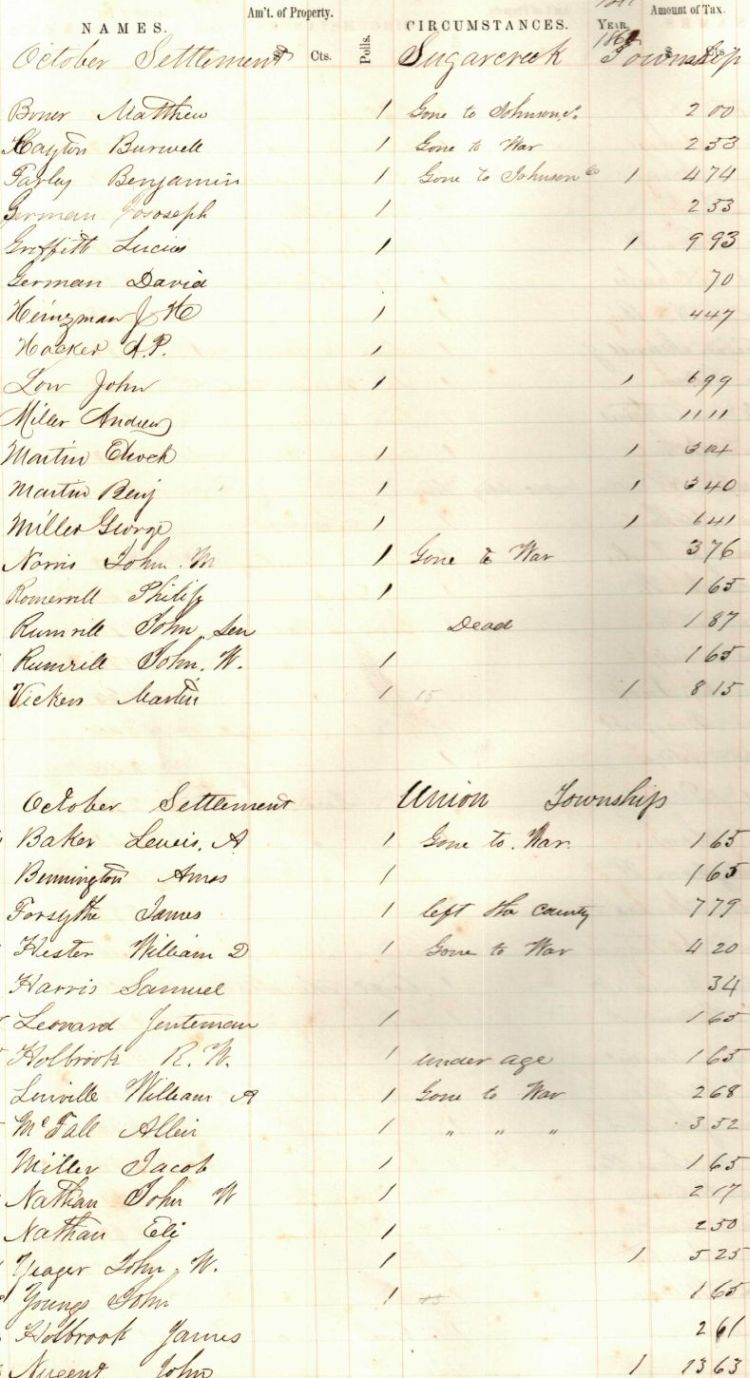 NAMES. Am't. of Property. Polls. CIRCUMSTANCES. Year. Amount of Tax.
$ Cts. $ Cts.
October Settlement Sugarcreek 186 Township
Boner Matthew 1 Gone to Johnson 2 00
Burwell 1 Gone to War 2 53
Farley Benjamin 1 Gone to Johnson Co 1 4 74
German 1 2 53
Griffith Lucius 1 1 9 93
German David 70
Heinzman J H 1 4 47
Hacker A.P. 1
Low John 1 1 6 99
Miller Andrew 11 11
Martin 1 1
Martin Benj 1 1 3 40
Miller George 1 1 6 41
Norris John M 1 Gone to War 3 76
Romerrill Philip 1 1 65
Rumrill John Sen Dead 1 87
Rumrill John. W. 1 1 65
Vickers Martin 1 15 1 8 15
October Settlement Union Township
Baker Lewis. A 1 Gone to. War. 1 65
Bennington Amos 1 1 65
Forsythe James 1 left the county 7 79
Hester William D 1 Gone to War 4 20
Harris Samuel 34
Leonard 1 1 65
Holbrook R. W. 1 under age 1 65
Linville William A 1 Gone to War 2 68
McFall Allen 1 " " " 3 52
Miller Jacob 1 1 65
Nathan John W 1 2 17
Nathan Eli 1 2 50
Yeager John. W. 1 1 5 25
Youngs John 1 1 65
Holbrook James 2 61
Nugent John 1 13 63